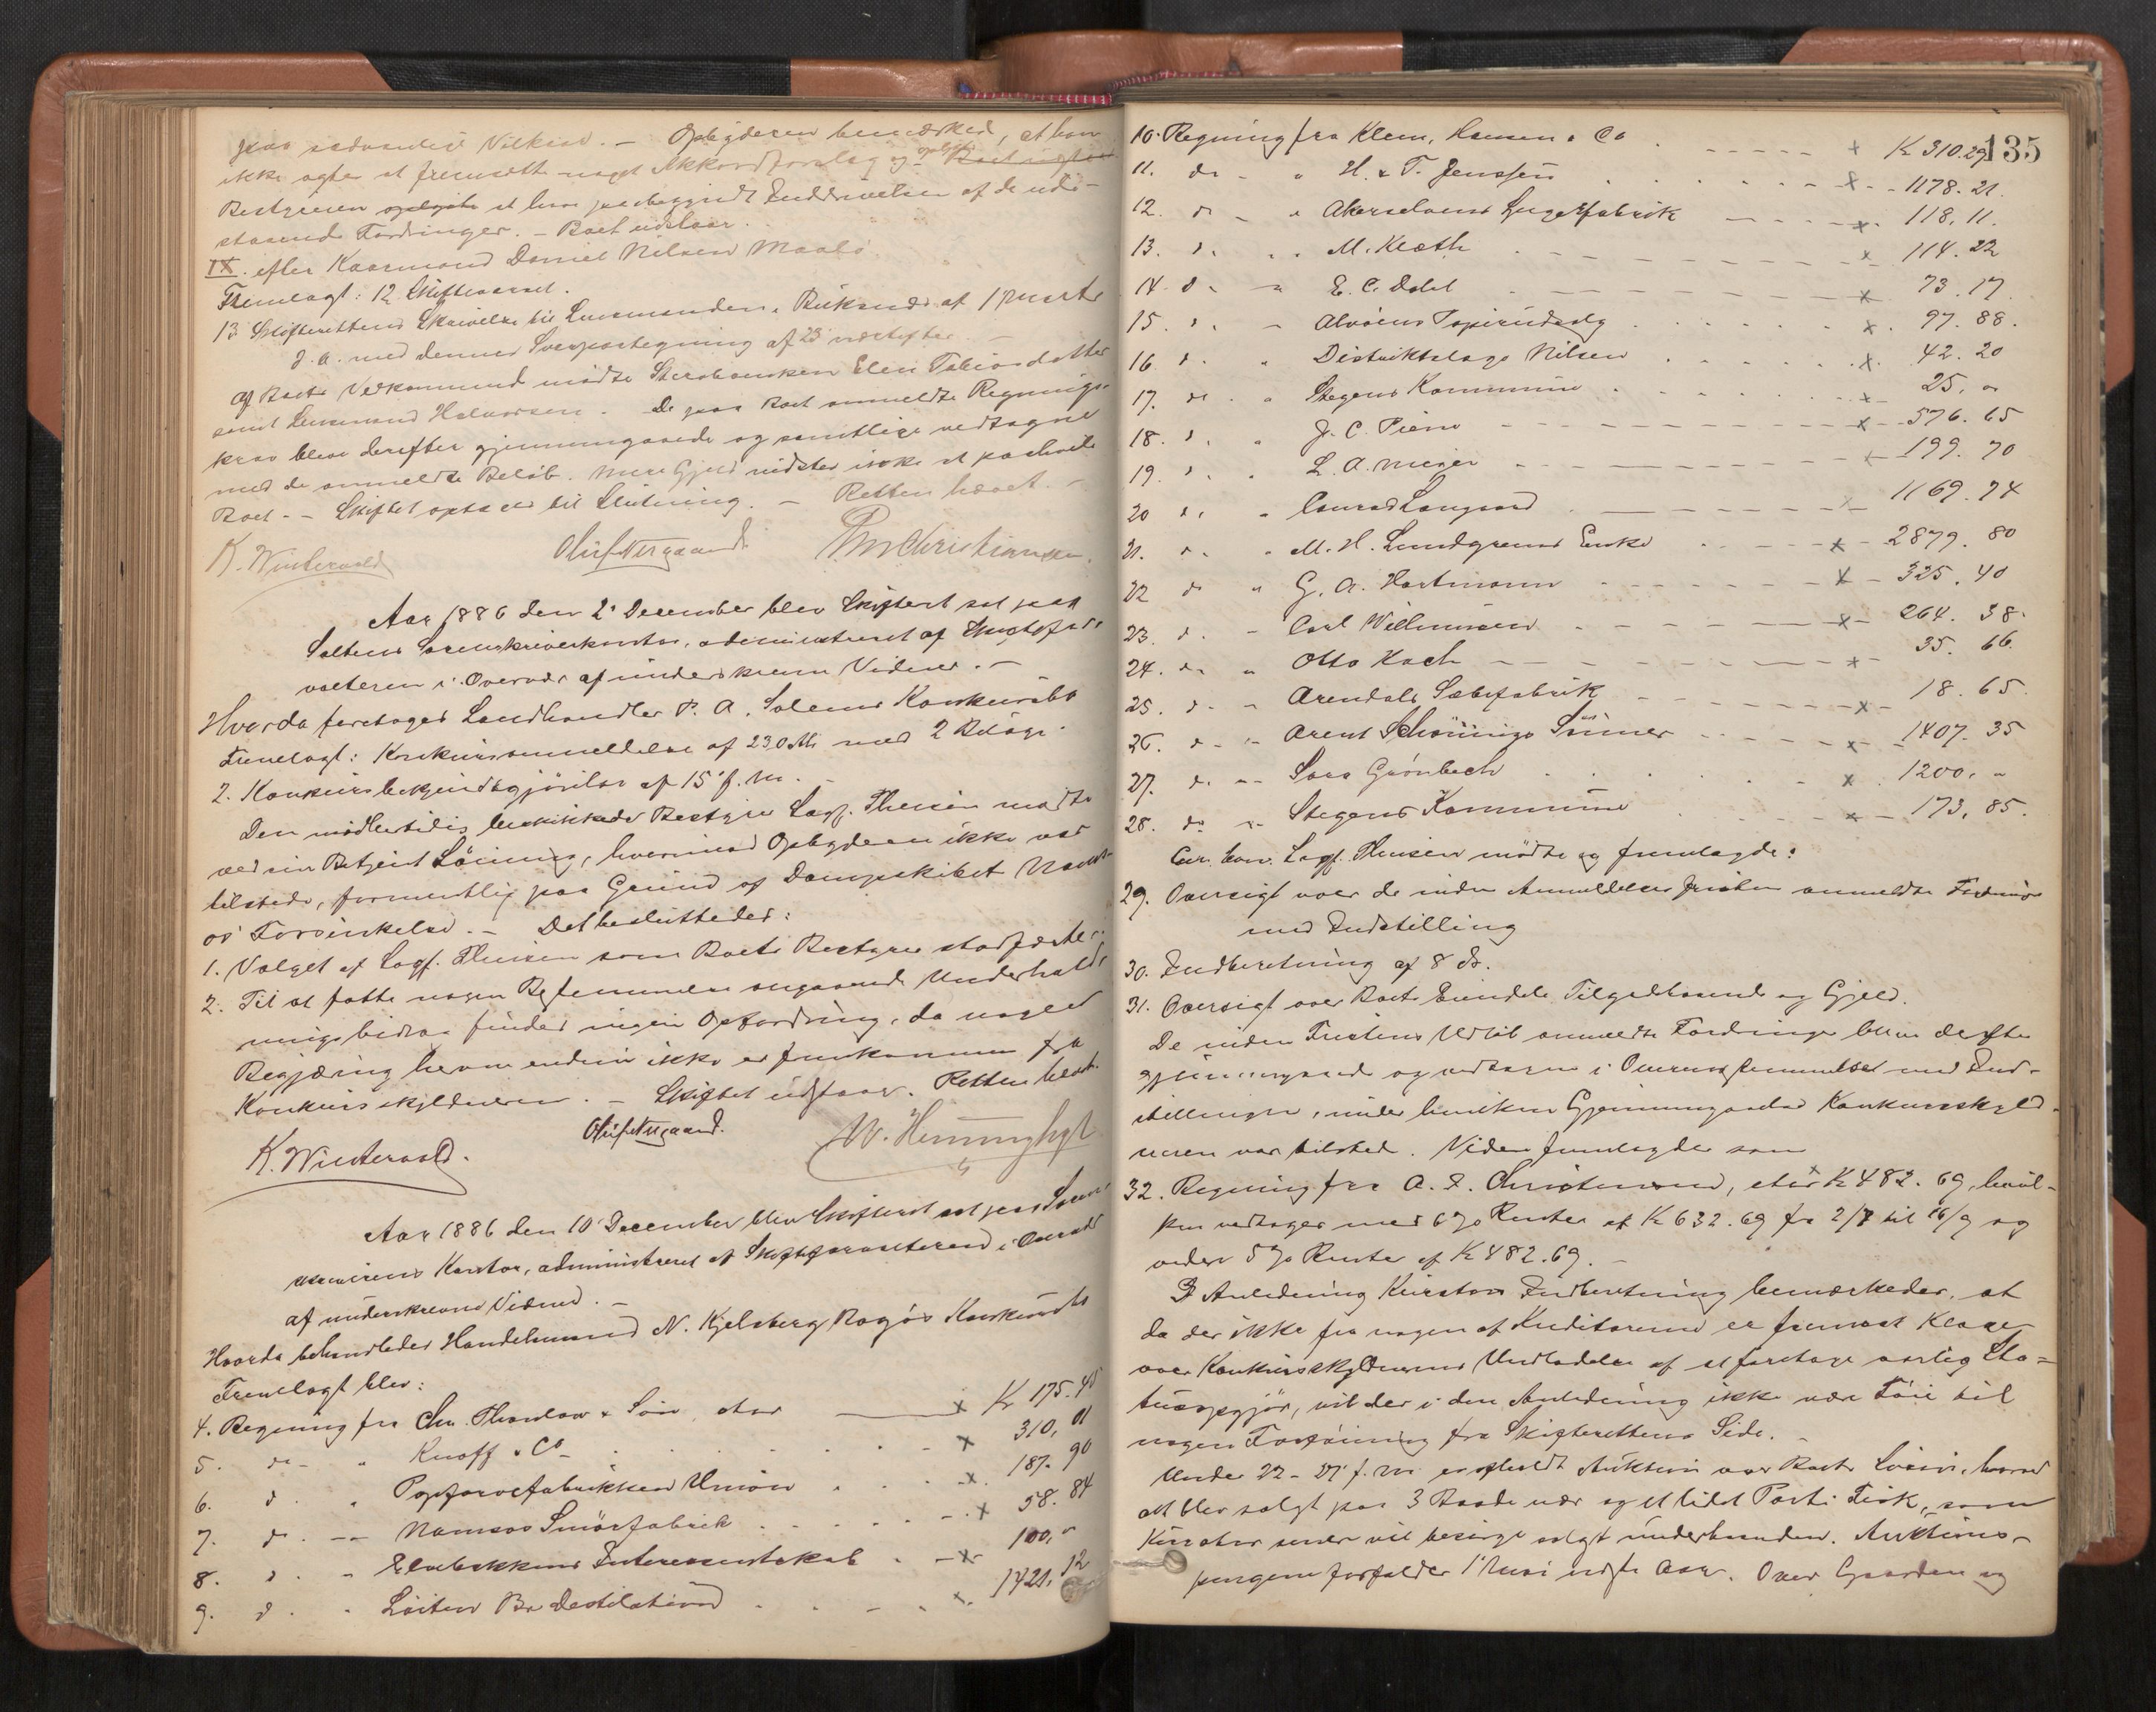 paa sedvanlige Vilkaar. – Opbyderen bemærked, at han
ikke agter at fremsætte noget Akkordforslag og
Bestyreren at have paabegyndt Inddrivelsen af de ude-
staaende Fordringer. – Boet udstaar.
IX. efter Kaarmand Daniel Nilsen Maalö.
Fremlagt: 12 Skiftevarsel.
13 Skifterettens Skrivelse til Lensmanden af
d. a. med dennes Svarpaategning af 23 næstefter.
Af Boets Vedkommende mödte Sterboenken Elen Tobiasdatter
samt Lensmand Halvorsen. De paa Boet anmeldte Regnings-
krav blev derefter gjennemgaaede og samtlige vedtagne
med de anmeldte Belöb. Mere Gjeld vidstes ikke at paahvile
Boet. – Skiftet optages til Slutning. – Retten hævet. –
K. Winterwold Oluf Nergaard Chr Christiansen.
Aar 1886 den 2' December blev Skifteret sat paa
Saltens Sorenskriverkontor, administreret af Skiftefuld-
mægtigen i Overvær af underskrevne Vidner. –
Hvorda foretoges Landhandler P. A. Solems Konkursbo
Fremlagt: 1 Konkursanmeldelse af 23 Okt. med 2 Bilage.
2. Konkursbekjendtgjörelse af 15' f. M. –
Den midlertidig beskikkede Bestyrer Sagf. Thesen mødte
ved sin Betjent Löining, hvorimod Opbyderen ikke var
tilstede, formentlig paa Grund af Dampskibet
Forsinkelse. – Det besluttedes:
1. Valget af Sagf. Thesen som Boets Bestyrer stadfæstes.
2. Til at fatte nogen Bestemmelse angaaende Underhold-
ningsbidrag findes ingen Opfordring, da nogen
Begjæring herom endnu ikke er fremkommen fra
Konkursskyldneren. – Skiftet udstaar. Retten hævet.
K. Winterwold. Oluf Nergaard. W. Henning
Aar 1886 den 10' December blev Skifteret sat paa Soren-
skriverens Kontor, administreret af i Overvær
af underskrevne Vidner. –
Hvorda behandledes Handelsmand N. Kjelsberg Bogös Konkursbo
Fremlagt blev:
4. Regning fra Chr. Thaulow & Sön, stor x Kr 175.45
5. do " Knoff & Co x 310,01
6. d " Papforefabrikken Union x 187.90
7. do " Namsos Smörfabrik x 58.84
8. d " Elvebakkens Interessentskab x 100,"
9. d " Löiten Br. Destilation x 1421,12
135
10. Regning fra Klem, Hansen & Co x Kr 310.29
11. do " H. & T. Jenssen x 1178.21.
12. d " Akerselvens x 118.11.
13. d " M. Kloth x 114.22
14. d " E. C. Dahl x 73.17
15. d " Alvöens Papirudsalg x 97.88.
16 d " Distriktslæge Nilsen x 42.20
17. d " Stegens Kommune x 25."
18. d " J. C. Piene x 576.65
19. d " L. A. Meyer x 199.70
20 d " Conrad Langaard x 1169.74
21. d " M. H. Lundgrens Enke x 2879.80
22 do " G. A. Hartmann x 325.40
23. d " Carl Willumsen x 264.38.
24. do " Otto Koch x 35.66.
25. d " Arendals Sæbefabrik x 18.65
26. d " Arent Schönings Sönner x 1407.35
27. d " Sara Grönbech x 1200."
28. do " Stegens Kommune x 173,85.
Cur. bon. Sagf. Thesen mødte og fremlagde:
29. Oversigt over de inden Anmeldelsesfristen anmeldte Fordringer
med Indstilling
30. Indberetning af 8 ds.
31. Oversigt over Boets Eiendele Tilgodehavende og Gjeld.
De inden Fristens Udlöb anmeldte Fordringer blev derefter
gjennemgaaede og vedtagne i Overensstemmelse med Ind-
stillingen, under hvilken Gjennemgaaelse Konkursskyld-
neren var tilstede. Videre fremlagdes som
32. Regning fra A. Z. Christensen, stor x Kr 482.69, hvil-
ken vedtages med 6% Renter af Kr 632.69 fra 2/7 til 16/9 og
videre 5% Rente af Kr 482.69. –
I Anledning Kurators Indberetning bemærkedes, at
da der ikke fra nogen af Kreditorerne er fremsat Klage
over Konkursskyldnerens Undladelse af at foretage aarlig Sta-
tusopgjör, vil der i den Anledning ikke være Föie til
nogen Forföining fra Skifterettens Side. –
Under 22-27' f. M. er afholdt Auktion over Boets Lösöre, hvorved
alt blev solgt paa 3 Baade nær og et lidet Parti Fisk, som
Kurator senere vil besörge solgt underhaanden. Auktions-
pengene forfalder 1 Mai næste Aar. Over Gaarden og